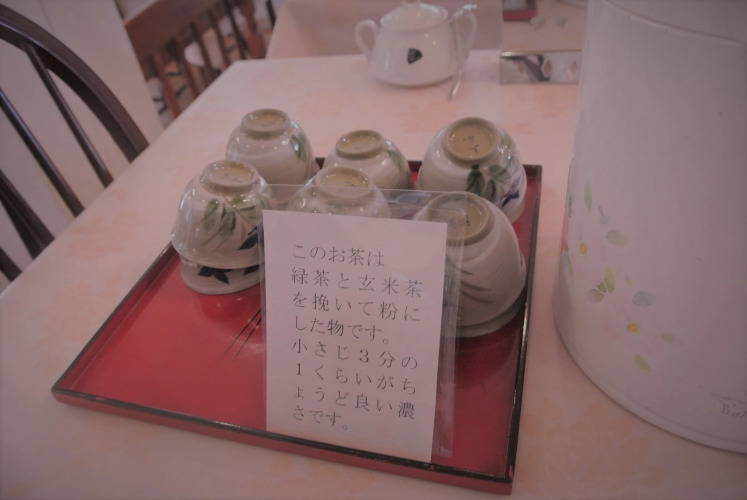 このお茶は
緑茶と玄米茶
を挽いて粉に
した物です。
小さじ３分の
１くらいがち
ょうど良い濃
さです。